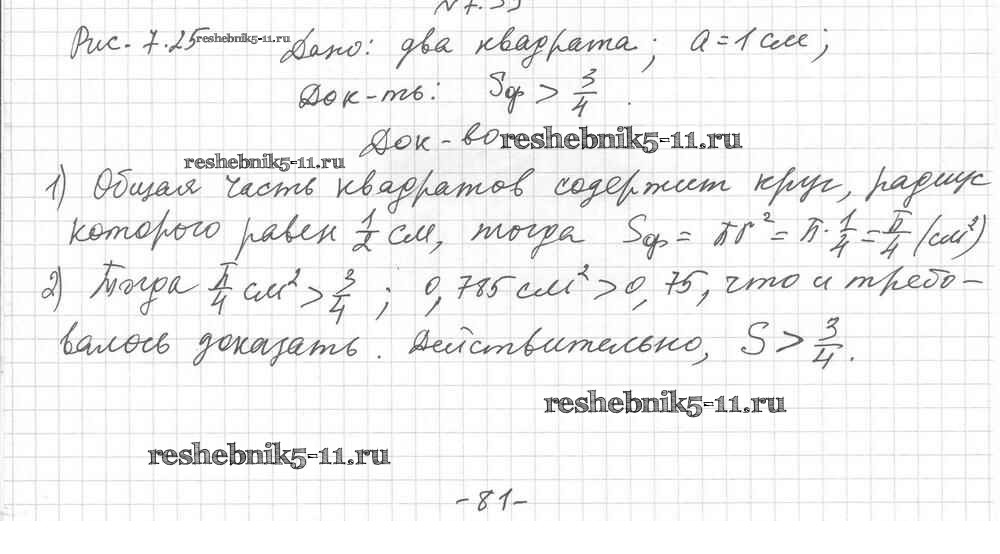 №7.33
Рис. 7.25 reshebnik5-11.ru Дано: два квадрата; a = 1 см;
Док-ть: Sф > 3/4.
Док-во reshebnik5-11.ru
reshebnik5-11.ru
1) Общая часть квадратов содержит круг, радиус
которого равен 1/2 см, тогда Sф = πr² = π · 1/4 = π/4 (см²)
2) Тогда π/4 см² > 3/4; 0,785 см² > 0,75, что и требо-
валось доказать. Действительно, S > 3/4.
reshebnik5-11.ru
reshebnik5-11.ru
-81-